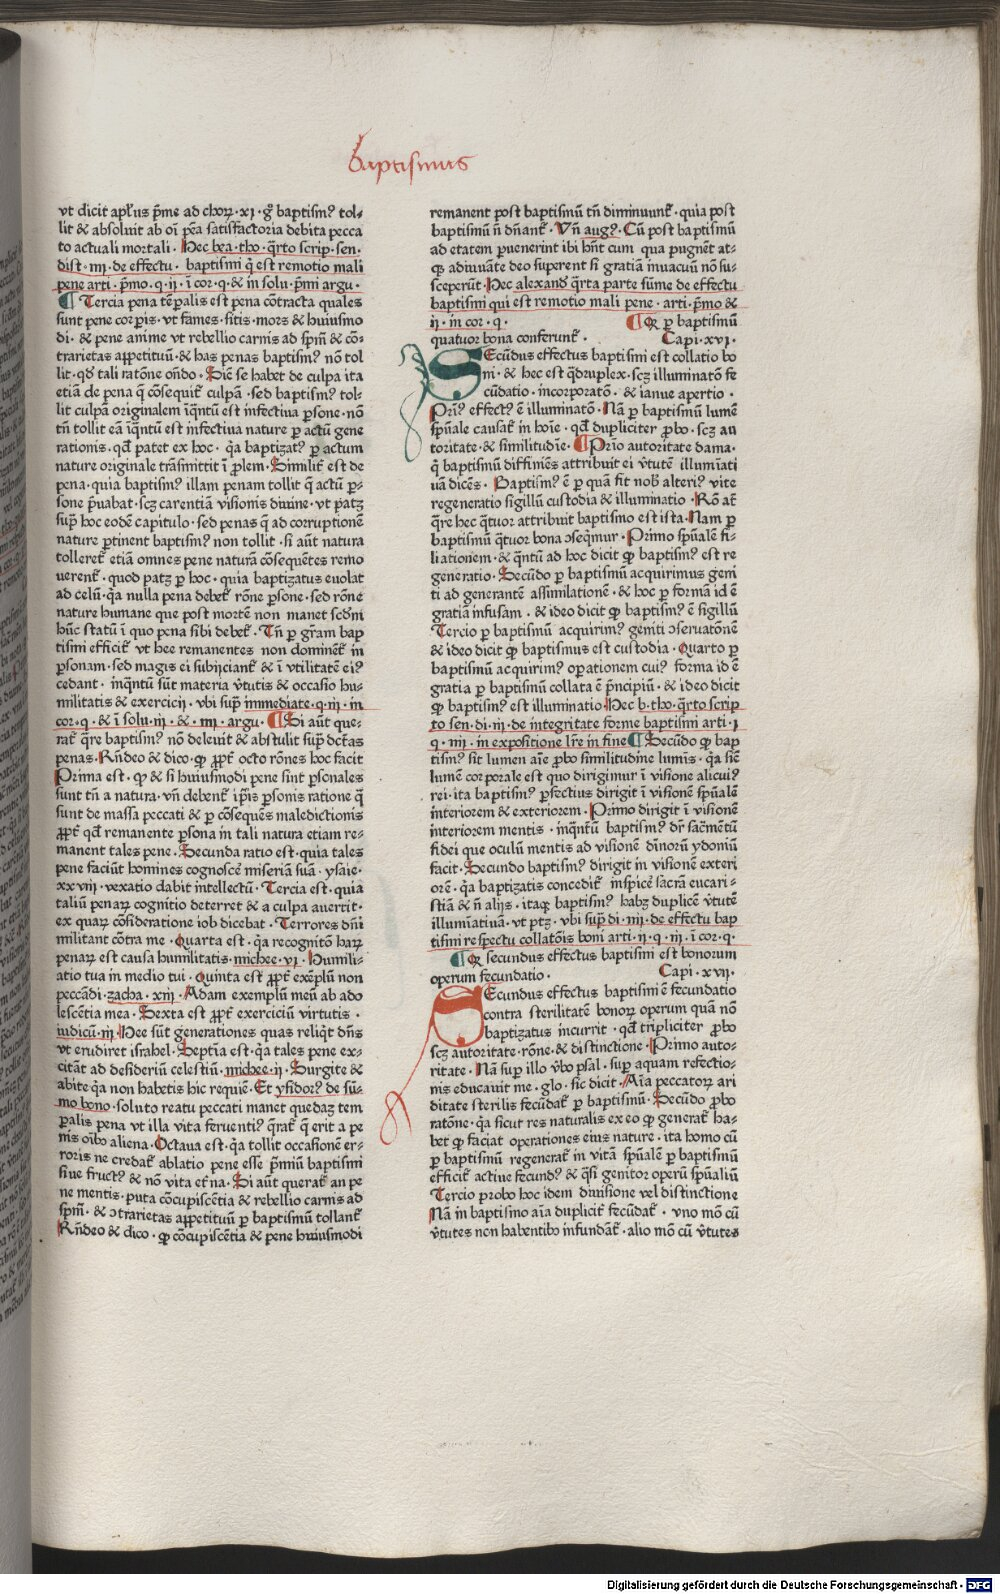 baptismus
vt dicit apl'us p̄me ad choꝝ·xi·gͦ baptismꝰ tol⸗
lit & absoluit ab oī pēa satisfactoria debita pecca
to actuali mortali· Hec bea·tho·q̄rto scrip·sen·
dist·iiii·de effectu· baptismi q̄ est remotio mali
pene arti·p̄mo·q·ii·ī cor·q·& in solu·p̄mi argu·
¶ Tercia pena tēp̄alis est pena cōtracta quales
sunt pene corꝑis·vt fames·sitis·mors & huiusmo
di·& pene anime vt rebellio carnis ad sp̄m̄ & cō⸗
trarietas appetituū·& has penas baptismꝰ nō tol
lit·qd̄ tali ratōne on̄do·Sic̄ se habet de culpa ita
etiā de pena q̄ cōsequit̄ culpā·sed baptismꝰ tol⸗
lit culpā originalem īq̄ntū est infectiua ꝑsone·nō
tn̄ tollit eā īq̄ntū est infectiua nature ꝑ actū gene
rationis·qd̄ patet ex hoc·q̄a baptizatꝰ ꝑ actum
nature originale trāsmittit ī ꝓlem·Similit̄ est de
pena·quia baptismꝰ illam penam tollit q̄ actū ꝑ⸗
sone p̄uabat·scꝫ carentiā visionis diuine·vt patꝫ
sup̄ hoc eodē capitulo·sed penas q̄ ad corruptionē
nature ꝑtinent baptismꝰ non tollit·si aūt natura
tolleret̄ etiā omnes pene naturā cōsequētes remo
uerent̄·quod patꝫ ꝑ hoc·quia baptizatus euolat
ad celū·q̄a nulla pena debet̄ rōne ꝑsone·sed rōne
nature humane que post mortē non manet scd̄m
hūc statū ī quo pena sibi debet̄·Tn̄ ꝑ gr̄am bap
tismi efficit̄ vt hee remanentes non dominēt̄ in
ꝑsonam·sed magis ei subijciant̄ & ī vtilitatē eiꝰ
cedant·inq̄ntū sūt materia v̄tutis & occasio hu⸗
militatis & exercicii·vbi sup̄ immediate·q·iii·in
cor·q·& ī solu·iii·&·iiii·argu·¶ Si aūt que⸗
rat̄ q̄re baptismꝰ nō deleuit & abstulit sup̄ dc̄tas
penas·Rn̄deo & dico·ꝙ ꝓpt̄ octo rōnes hoc facit
Prima est·ꝙ & si huiusmodi pene sint ꝑsonales
sunt tn̄ a natura·vn̄ debent̄ ip̄is ꝑsonis ratione q̄
sunt de massa peccati & ꝑ cōsequēs maledictionis
ꝓpt̄ qd̄ remanente ꝑsona in tali natura etiam re⸗
manent tales pene·Secunda ratio est·quia tales
pene faciūt homines cognosce̓ miseriā suā·ysaie·
xxviii·vexatio dabit intellectū·Tercia est·quia
taliū penaꝝ cognitio deterret & a culpa auertit·
ex quaꝝ cōsideratione iob dicebat·Terrores dn̄i
militant cōtra me·Quarta est·q̄a recognitō haꝝ
penaꝝ est causa humilitatis·michee·vi·Humili⸗
atio tua in medio tui·Quinta est ꝓpt̄ exēplū non
peccādi·zacha·xiii·Adam exemplū meū ab ado
lescētia mea·Sexta est ꝓpt̄ exerciciū virtutis·
iudicū·iii·Hee sūt generationes quas reliq̄t dn̄s
vt erudiret israhel·Septīa est·q̄a tales pene ex⸗
citāt ad desideriū celestiū·michee·ii·Surgite &
abite q̄a non habetis hic requiē·Et ysidorꝰ de sū⸗
mo bono·soluto reatu peccati manet quedaꝫ tem
ꝑalis pena vt illa vita feruentiꝰ q̄rat̄ q̄ erit a pe
nis oīb̓o aliena·Octaua est·q̄a tollit occasionē er⸗
roris ne credat̄ ablatio pene esse p̄miū baptismi
siue fructꝰ & nō vita et̄na·Si aūt querat̄ an pe
ne mentis·puta cōcupiscētia & rebellio carnis ad
sp̄m̄·& ↄtrarietas appetituū ꝑ baptismū tollant̄
Rn̄deo & dico·ꝙ cōcupiscētia & pene huiusmodi
remanent post baptismū tn̄ diminuunt̄·quia post
baptismū n̄ dn̄ant̄·Vn̄ augꝰ·Cū post baptismū
ad etatem ꝑuenerint ibi hn̄t cum qua pugnēt at⸗
qꝫ adiuuāte deo superent si gratiā inuacuū nō su⸗
sceperūt·Hec alexand̓ q̄rta parte sūme de effectu
baptismi qui est remotio mali pene·arti·p̄mo &
ii·in cor·q·
¶ Qꝫ ꝑ baptismū
quatuor bona conferunt̄·
Capi·xvi·
SEcūdus effectus baptismi est collatio bo
ni·& hec est q̄druplex·scꝫ illuminatō fe
cūdatio·incorporatō·& ianue apertio·
Prīꝰ effectꝰ ē illuminatō·Nā ꝑ baptismū lumē
sp̄uale causat̄ in hoīe·qd̄ dupliciter ꝓbo·scꝫ au
toritate·& similitudīe·¶ Prīo autoritate dama·
q̄ baptismū diffiniēs attribuit ei v̄tutē illumīati
uā dicēs·Baptismꝰ ē ꝑ quā fit nob̓ alteriꝰ vite
regeneratio sigillū custodia & illuminatio·Rō aūt
q̄re hec q̄tuor attribuit baptismo est ista·Nam ꝑ
baptismū q̄tuor bona ↄseq̄mur·Primo sp̄ualē fi⸗
liationem·& q̄ntū ad hoc dicit ꝙ baptismꝰ est re
generatio·Secūdo ꝑ baptismū acquirimus geni
ti ad generantē assimilationē·& hoc ꝑ formā id ē
gratiā infusam·& ideo dicit ꝙ baptismꝰ ē sigillū
Tercio ꝑ baptismū acquirimꝰ geniti ↄseruatōnē
& ideo dicit ꝙ baptismus est custodia·Quarto ꝑ
baptismū acquirimꝰ oꝑationem cuiꝰ forma id ē
gratia ꝑ baptismū collata ē p̄ncipiū·& ideo dicit
ꝙ baptismꝰ est illuminatio·Hec b·tho·q̄rto scrip
to sen·di·iii·de integritate forme baptismi arti·i
q·iiii·in expositione lr̄e in fine¶ Secūdo ꝙ bap
tismꝰ sit lumen aīe ꝓbo similitudine lumīs·q̄a sic̄
lumē corporale est quo dirigimur ī visione alicuiꝰ
rei·ita baptismꝰ ꝑfectius dirigit ī visionē sp̄ualē
interiorem & exteriorem·Primo dirigit ī visionē
interiorem mentis·inq̄ntū baptismꝰ dr̄ sac̄mētū
fidei que oculū mentis ad visionē diuinoꝝ ydoniū
facit·Secundo baptismꝰ dirigit in visionē exteri
orē·q̄a baptizatis concedit̄ inspice̓ sacrā eucari⸗
stiā & n̄ aliis·itaqꝫ baptismꝰ habꝫ duplicē v̄tutē
illumīatiuā·vt ptꝫ·vbi sup̄ di·iiii·de effectu bap
tismi respectu collatōis boni arti·ii·q·iii·ī cor·q·
¶ Qꝫ secundus effectus baptismi est bonorum
operum fecundatio·
Capi·xvii·
SEcundus effectus baptismi ē fecundatio
contra sterilitatē bonoꝝ operum quā nō
baptizatus incurrit·qd̄ tripliciter ꝓbo
scꝫ autoritate·rōne·& distinctione·Primo auto⸗
ritate·Nā sup̄ illo v̄bo psal·sup̄ aquam refectio⸗
nis educauit me·glo·sic dicit·Aīa peccatoꝝ ari
ditate sterilis fecūdat̄ ꝑ baptismū·Secūdo ꝓbo
ratōne·q̄a sicut res naturalis ex eo ꝙ generat̄ ha⸗
bet ꝙ faciat operationes eius nature·ita homo cū
ꝑ baptismū regenerat̄ in vitā sp̄ualē ꝑ baptismū
efficit̄ actiue fecundꝰ & q̄si genitor operū sp̄ualiū
Tercio probo hoc idem diuisione vel distinctione
Nā in baptismo aīa duplicit̄ fecūdat̄·vno mō cū
v̄tutes non habentib̓o infundāt̄·alio mō cū v̄tutes
Digitalisierung gefördert durch die Deutsche Forschungsgemeinschaft - DFG